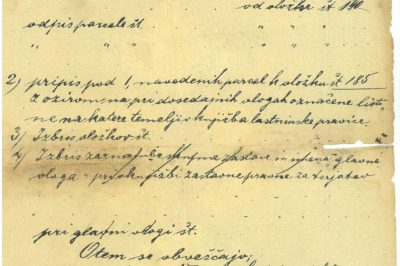 od vložka št 140
odpis parcele št.
" " " " " "
2) pripis pod 1, navedenih parcel k vložku št 185
z ozirom na pri dosedajnih vlogah označene list-
ne na katere temelji vknjižba lastninske pravice.
3) Izbris vložkov št.
4) Izbris zaznambe skupne zastave in mena „glavna
vloga" pri vknjižbi zastavne pravice za terjatev
pri glavni vlogi št.
O tem se obveščajo;